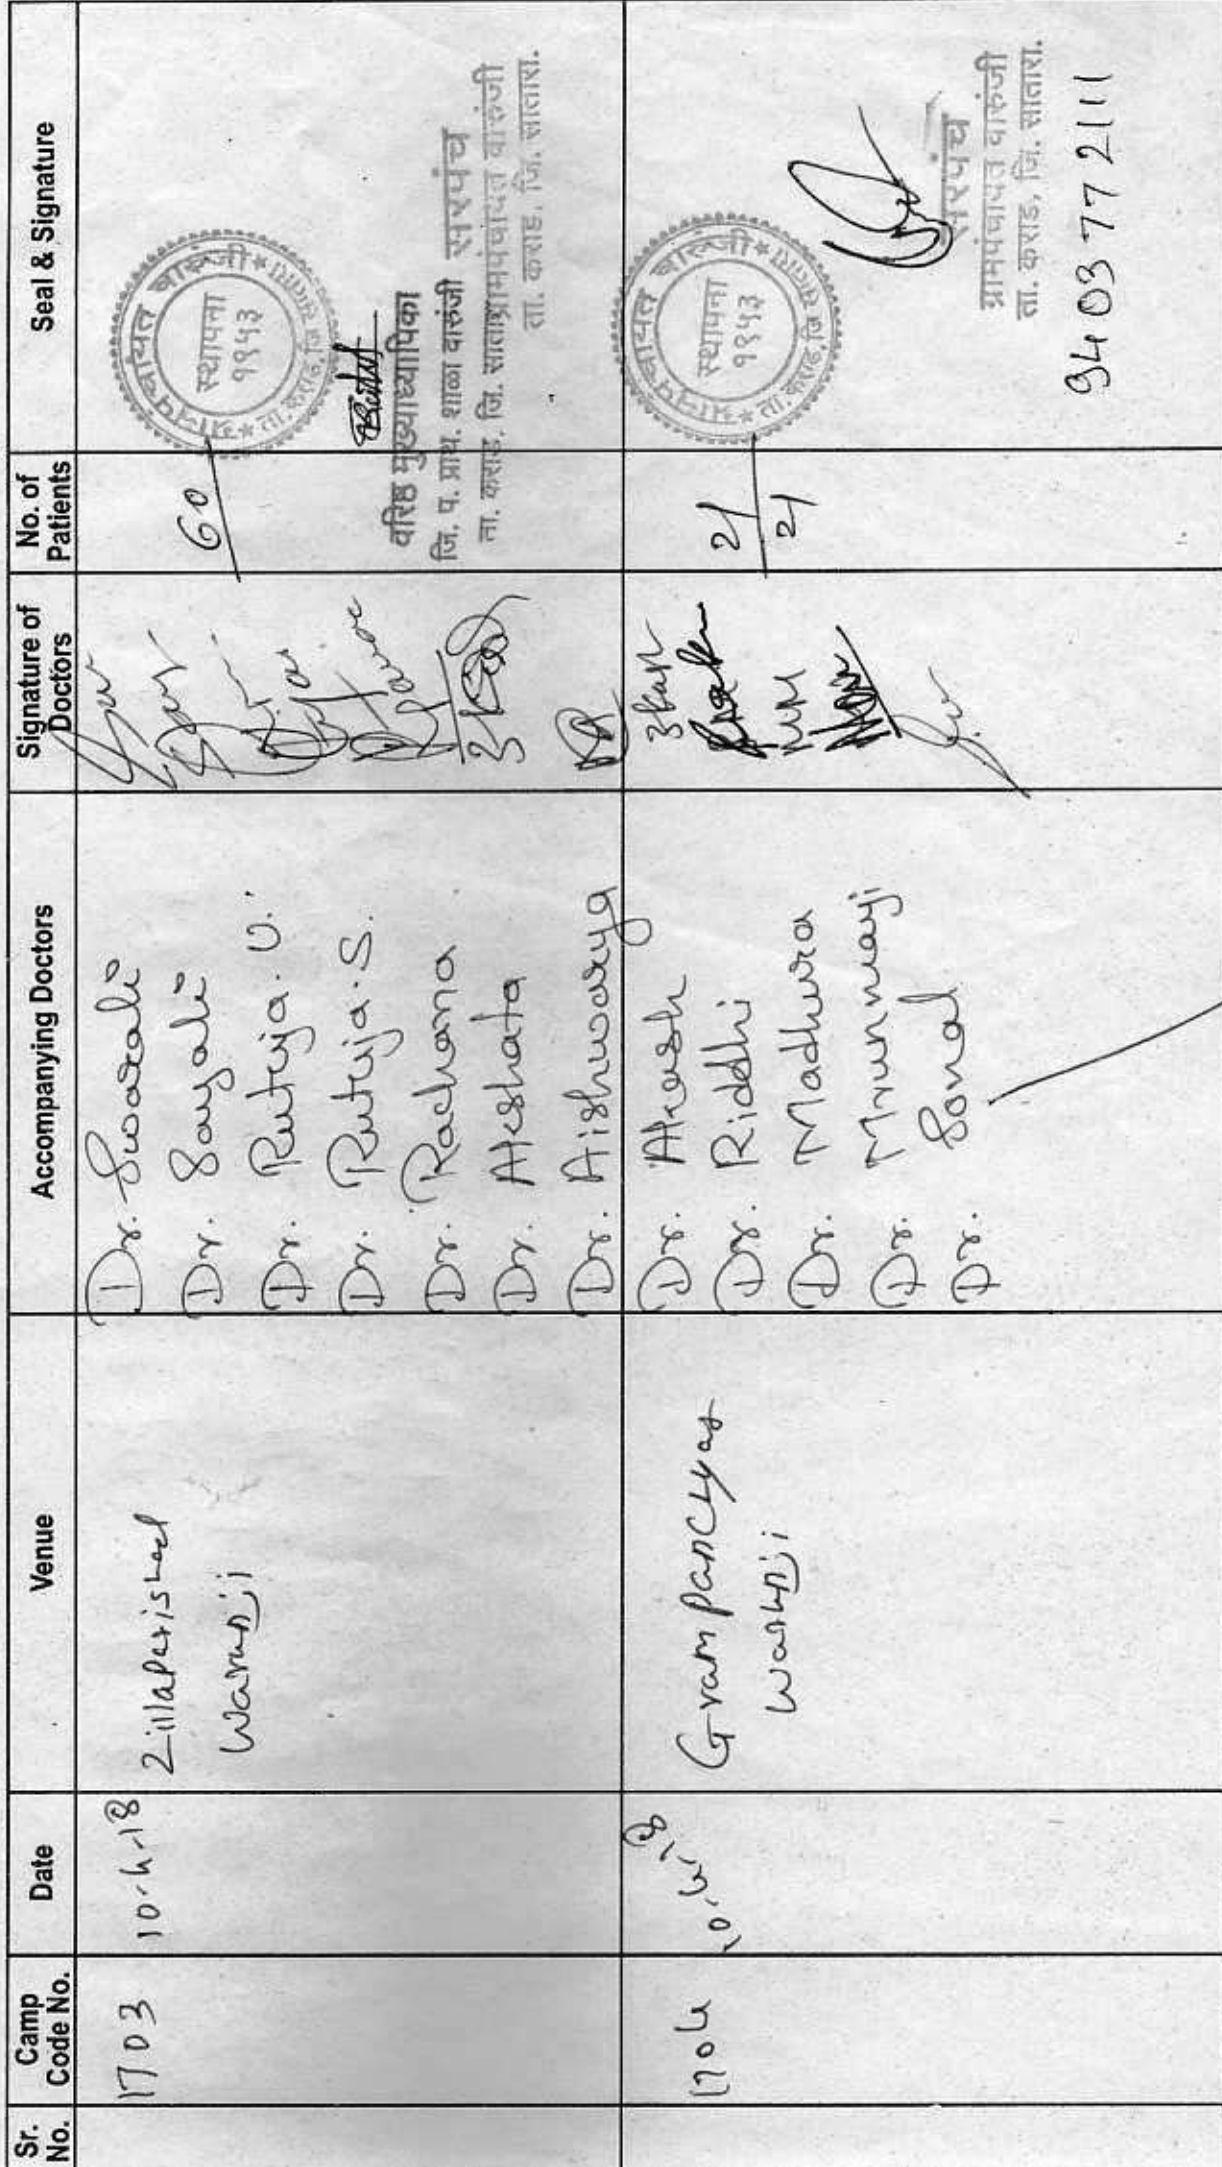 Sr. No.
Camp Code No.
Date
Venue
Accompanying Doctors
Signature of Doctors
No. of Patients
Seal & Signature
1703
10-4-18
Zillaparishad
Warunji
Dr. Swarali
Dr. Sayali
Dr. Rutuja. U.
Dr. Rutuja. S.
Dr. Rachana
Dr. Akshata
Dr. Aishwarya
60
ग्रामपंचायत वारुंजी
स्थापना
१९५३
ता. कराड जि. सातारा
वरिष्ठ मुख्याध्यापिका
जि. प. प्राथ. शाळा वारुंजी
ता. कराड, जि. सातारा
सरपंच
ग्रामपंचायत वारुंजी
ता. कराड, जि. सातारा.
1704
10-4-18
Grampanchyat
Warunji
Dr. Akash
Dr. Riddhi
Dr. Madhura
Dr. Mrunmayi
Dr. Sonal
21
21
ग्रामपंचायत वारुंजी
स्थापना
१९५३
ता. कराड जि. सातारा
सरपंच
ग्रामपंचायत वारुंजी
ता. कराड, जि. सातारा.
9403772111